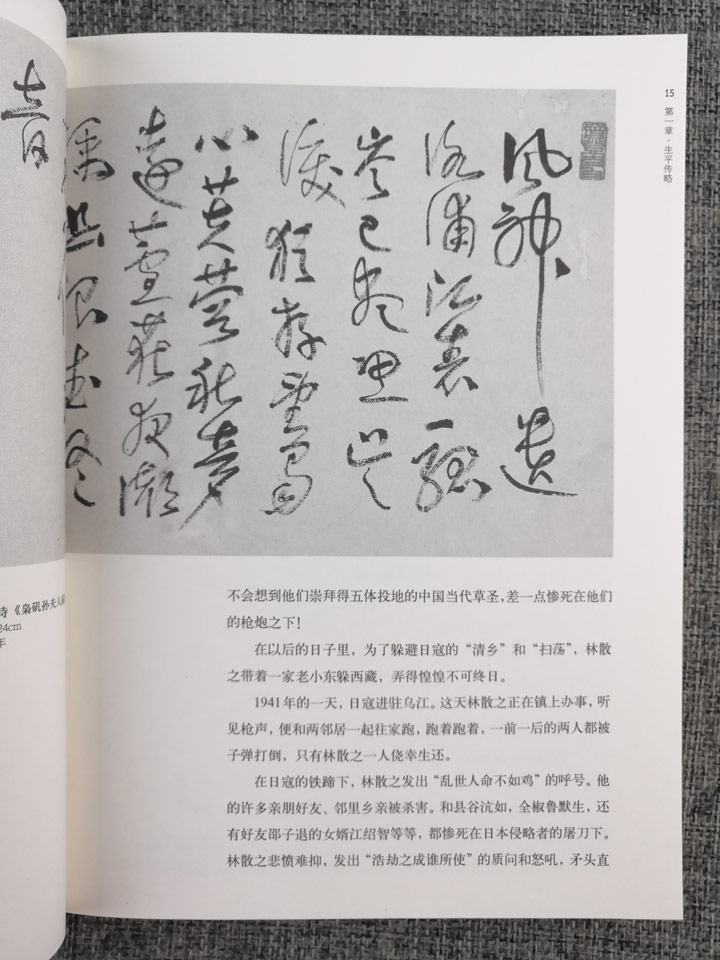 15
第一章·生平传略
风神遗
洛浦江表
犹存望蜀
心芙蓉秋
《枭矶孙夫人
24cm
年
不会想到他们崇拜得五体投地的中国当代草圣，差一点惨死在他们
的枪炮之下！
在以后的日子里，为了躲避日寇的“清乡”和“扫荡”，林散
之带着一家老小东躲西藏，弄得惶惶不可终日。
1941年的一天，日寇进驻乌江。这天林散之正在镇上办事，听
见枪声，便和两邻居一起往家跑，跑着跑着，一前一后的两人都被
子弹打倒，只有林散之一人侥幸生还。
在日寇的铁蹄下，林散之发出“乱世人命不如鸡”的呼号。他
的许多亲朋好友、邻里乡亲被杀害。和县谷沆如，全椒鲁默生，还
有好友邵子退的女婿江绍智等等，都惨死在日本侵略者的屠刀下。
林散之悲愤难抑，发出“浩劫之成谁所使”的质问和怒吼，矛头直